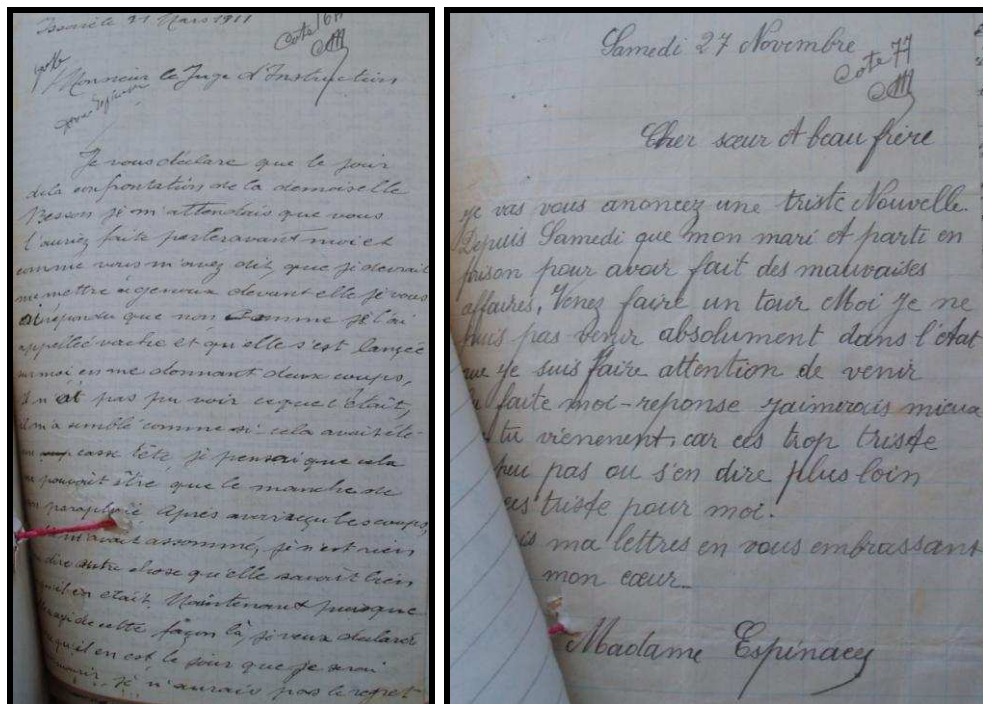 21 Mars 1911
Cote
Monsieur le Juge d'Instruction
Je vous déclare que le jour
de la confrontation de la demoiselle
Besson je m'attendais que vous
l'auriez faite parler avant moi et
comme vous m'avez dit que je devrai
me mettre a genoux devant elle je vous
répondu que non comme je l'ai
appellée vache et qu'elle s'est lancée
sur moi en me donnant deux coups,
pas pu voir ce que c'était,
il m'a semblé comme si cela avait été
un casse tête, je pensai que cela
ne pouvait être que le manche de
son Après avoir reçu les coups,
m'avait assommé, je n'est rien
dire autre chose qu'elle savait bien
qu'il en était. Maintenant puisque
de cette façon là, je veux déclarer
qu'il en est le jour que je serai
mourir je n'aurais pas le regret
Samedi 27 Novembre
Cote 77
Cher sœur et beau frère
Je vas vous anoncez une triste Nouvelle.
Depuis Samedi que mon mari et parti en
prison pour avoir fait des mauvaises
affaires, Venez faire un tour Moi Je ne
puis pas venir absolument dans l'état
que je suis faire attention de venir
faite moi-reponse jaimerais mieux
tu vienenent car ces trop triste
peu pas ou s'en dire plus loin
ces triste pour moi.
ma lettres en vous embrassant
mon cœur
Madame Espinacey